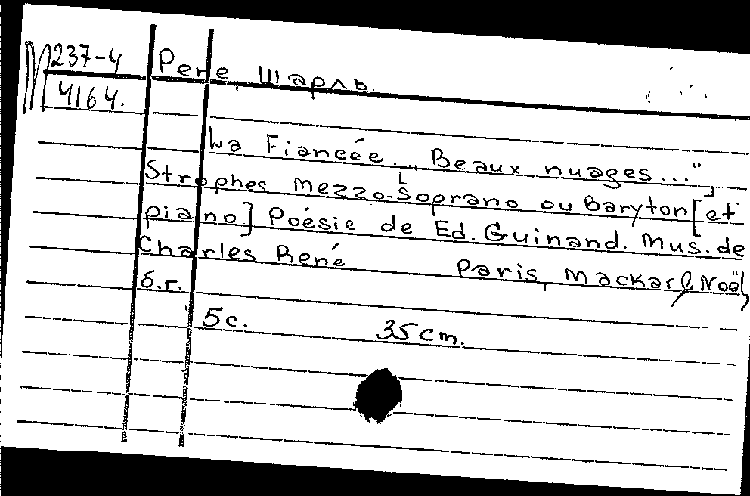 М 237-4
4164.
Рене, Шарль.
La Fiancée. „Beaux nuages..."
Strophes mezzo-Soprano ou baryton [et
piano] Poésie de Ed. Guinand. Mus. de
Charles René Paris, Mackar & Noël,
б.г.
5с. 35 cm.